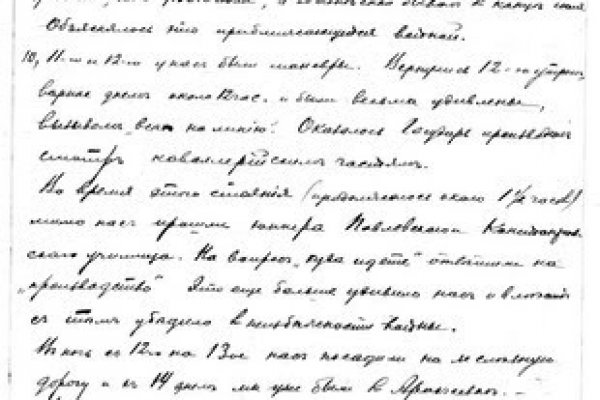 Объяснялось это приближающейся войной.
10, 11-го и 12-го у нас были маневры. Вернулись 12-го утром,
вернее днем около 12 час. и были весьма удивлены,
вызывом „всех на линию". Оказалось Государь производил
смотръ кавалерийским частям.
Во время этого стояния (продолжалось около 1½ часов)
мимо нас прошли юнкера Павловского
училища. На вопрос „куда идете" ответили на
„производство" Это еще больше удивило нас и
с тем убедило в неизбежности войны.
В ночь с 12го на 13ое нас посадили на железную
дорогу и в 14 днем мы уже были в